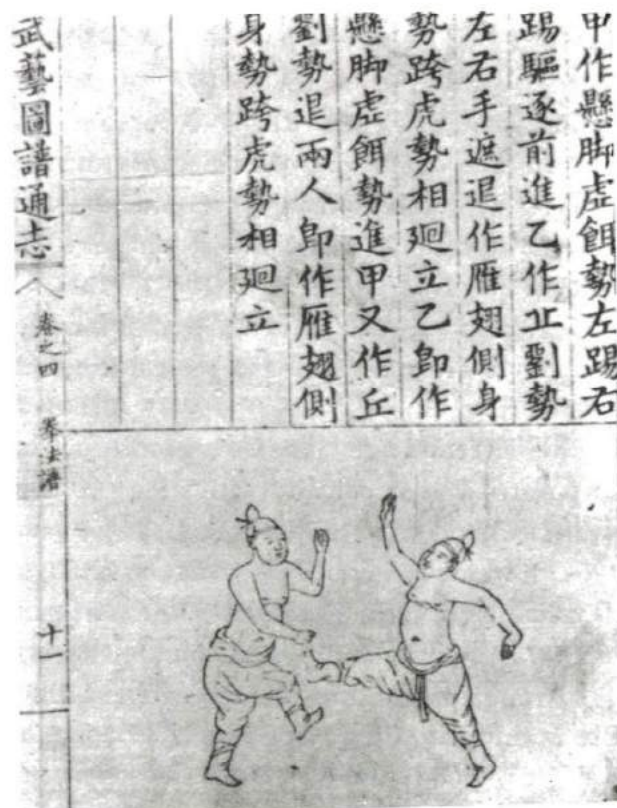 甲作懸脚虛餌勢左踢右
踢驅逐前進乙作丘劉勢
左右手遮退作雁翅側身
勢跨虎勢相廻立乙卽作
懸脚虛餌勢進甲又作丘
劉勢退兩人卽作雁翅側
身勢跨虎勢相廻立
武藝圖譜通志 卷之四 拳法譜 十一